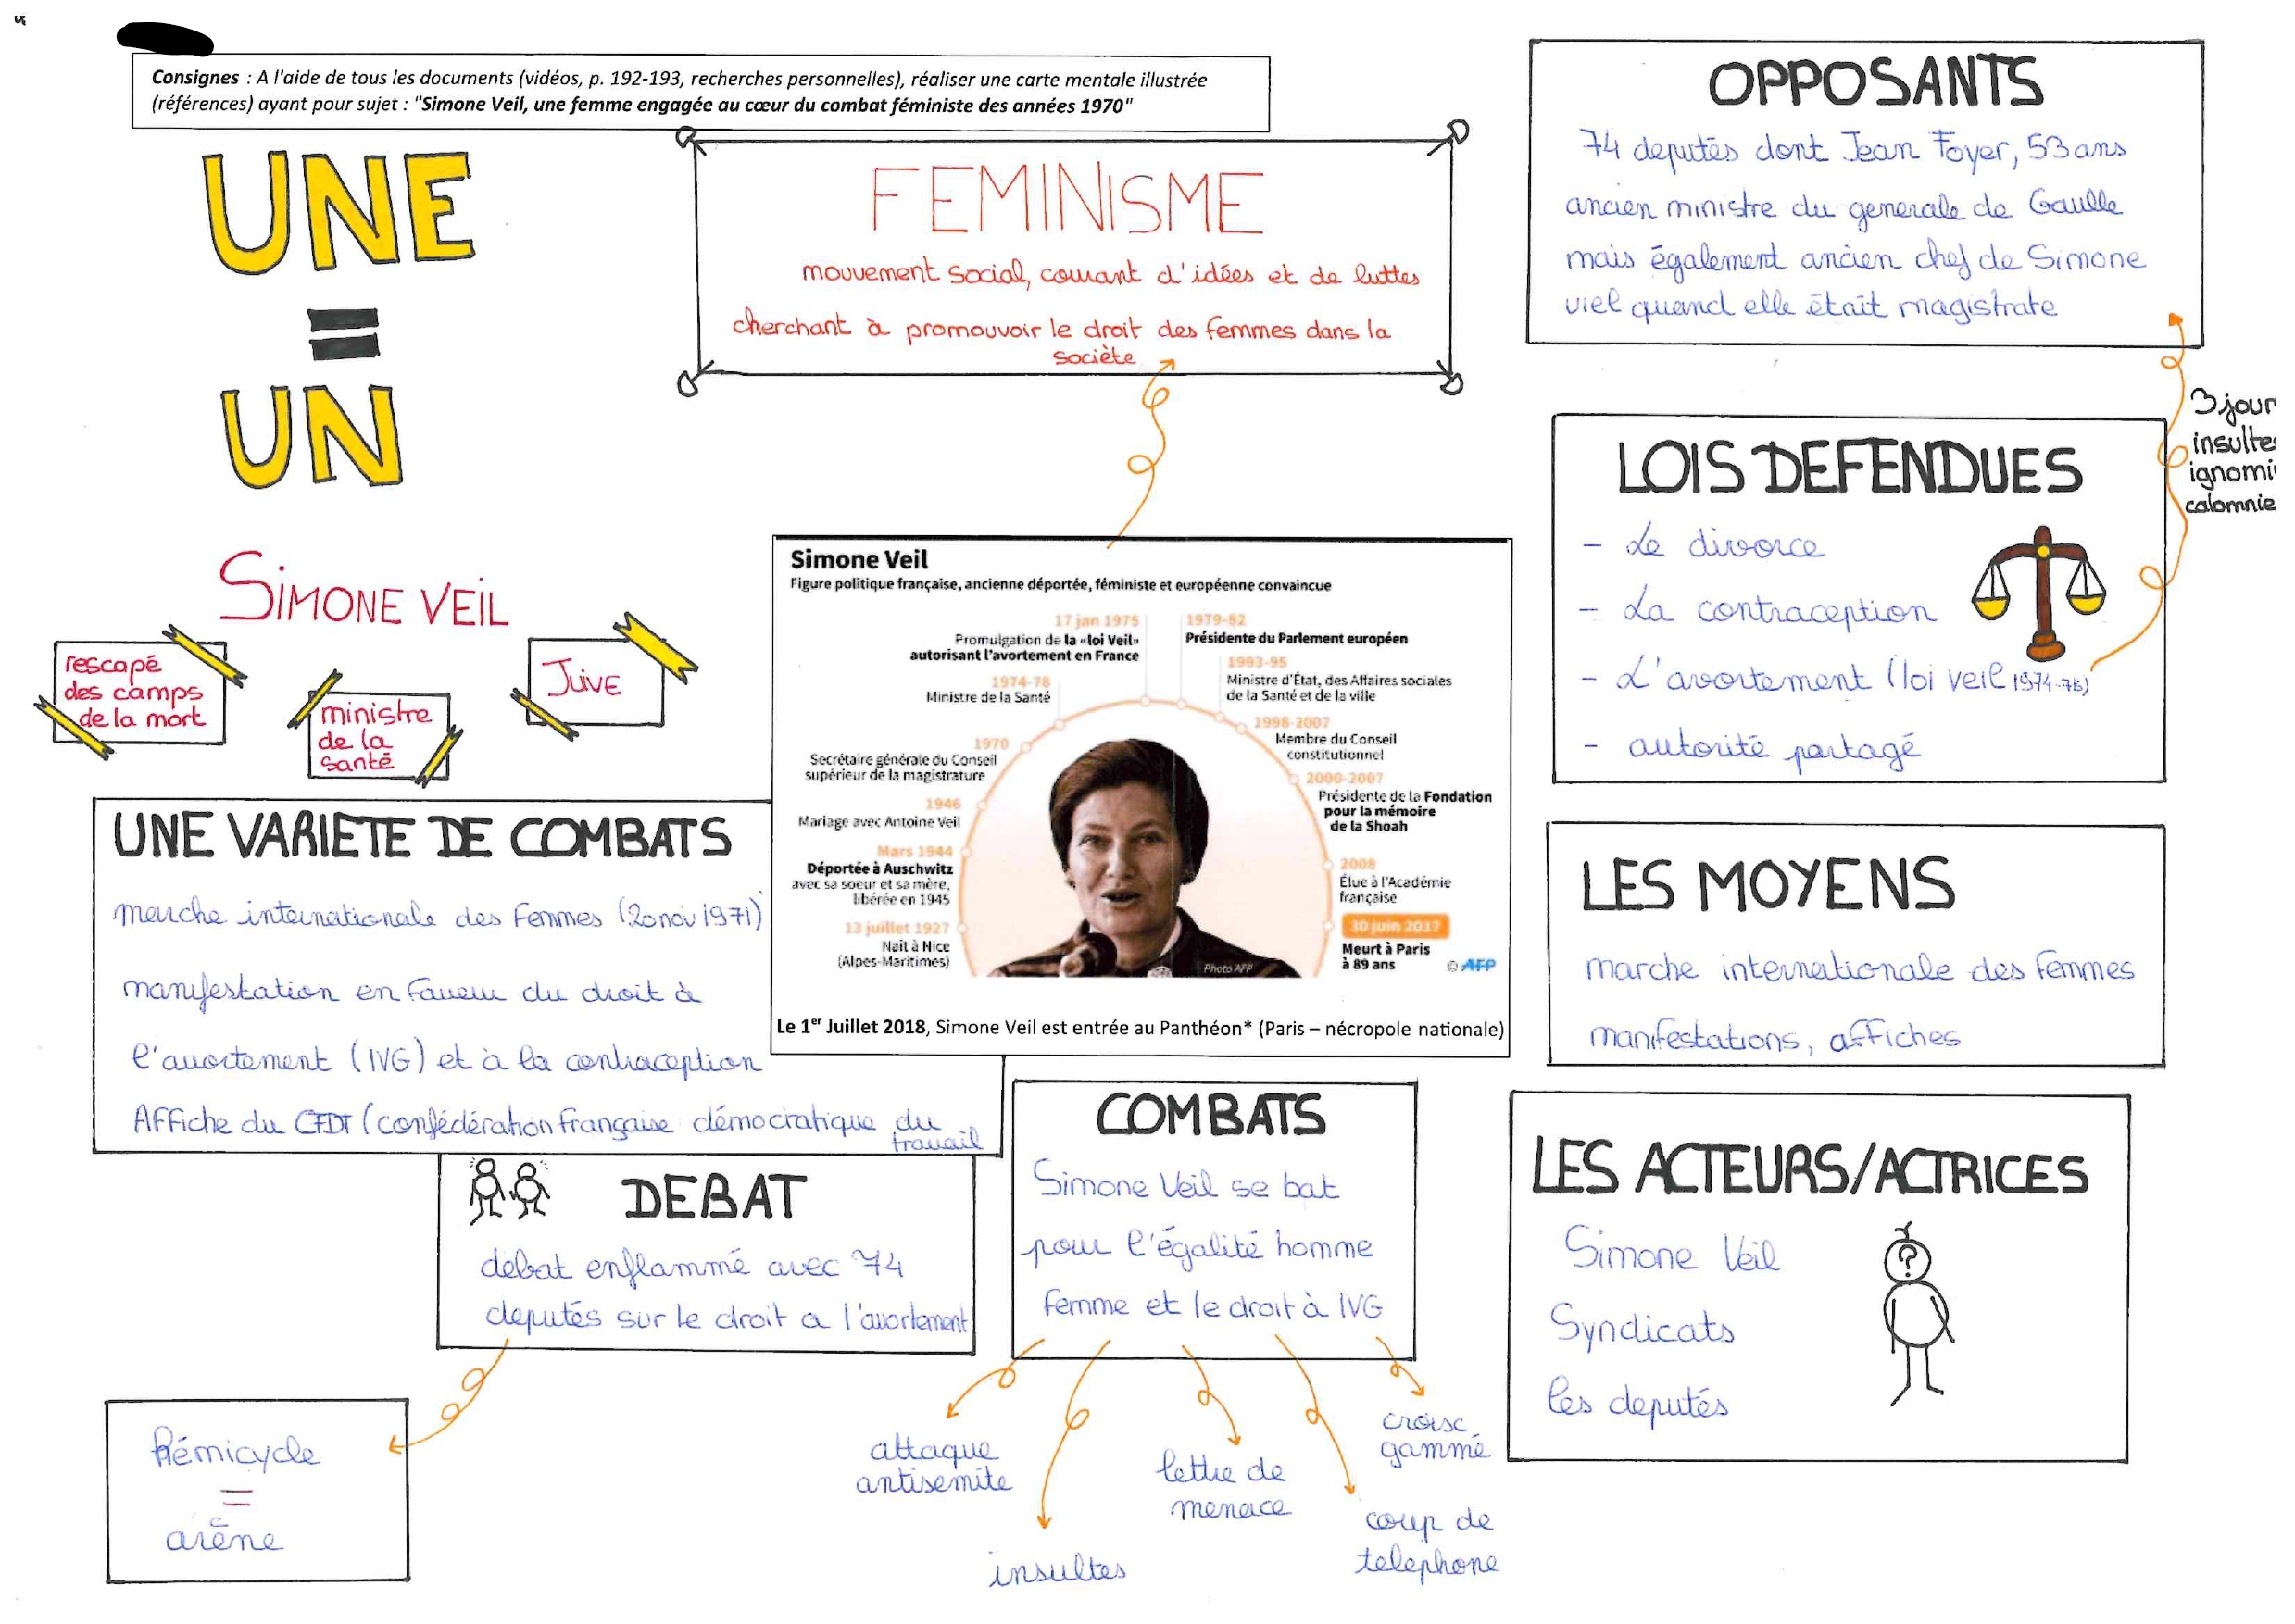 Consignes : A l'aide de tous les documents (vidéos, p. 192-193, recherches personnelles), réaliser une carte mentale illustrée
(références) ayant pour sujet : "Simone Veil, une femme engagée au cœur du combat féministe des années 1970"
UNE
=
UN
FEMINISME
mouvement social, courant d'idées et de luttes
cherchant à promouvoir le droit des femmes dans la
sociète
OPPOSANTS
74 deputés dont Jean Foyer, 53 ans
ancien ministre du generale de Gaulle
mais également ancien chef de Simone
viel quand elle était magistrate
3 jour
insulte
ignomi
calomnie
LOIS DEFENDUES
- Le divorce
- La contraception
- L'avortement (loi veil 1974-75)
- autorité partagé
SIMONE VEIL
rescapé
des camps
de la mort
ministre
de la
santé
JUIVE
Simone Veil
Figure politique française, ancienne déportée, féministe et européenne convaincue
17 jan 1975
Promulgation de la «loi Veil»
autorisant l'avortement en France
1974-78
Ministre de la Santé
1970
Secrétaire générale du Conseil
supérieur de la magistrature
1946
Mariage avec Antoine Veil
Mars 1944
Déportée à Auschwitz
avec sa soeur et sa mère,
libérée en 1945
13 juillet 1927
Naît à Nice
(Alpes-Maritimes)
1979-82
Présidente du Parlement européen
1993-95
Ministre d'État, des Affaires sociales
de la Santé et de la ville
1998-2007
Membre du Conseil
constitutionnel
2000-2007
Présidente de la Fondation
pour la mémoire
de la Shoah
2008
Élue à l'Académie
française
30 juin 2017
Meurt à Paris
à 89 ans
Photo AFP
© AFP
Le 1er Juillet 2018, Simone Veil est entrée au Panthéon* (Paris – nécropole nationale)
UNE VARIETE DE COMBATS
marche internationale des Femmes (20 nov 1971)
manifestation en faveur du droit à
l'avortement (IVG) et à la contraception
Affiche du CFDT (confédération française démocratique du
travail
LES MOYENS
marche internationale des femmes
manifestations, affiches
DEBAT
debat enflammé avec 74
deputés sur le droit a l'avortement
Hémicycle
=
arène
COMBATS
Simone Veil se bat
pour l'égalité homme
femme et le droit à IVG
attaque
antisemite
insultes
lettre de
menace
coup de
telephone
croisc
gammé
LES ACTEURS/ACTRICES
Simone Veil
Syndicats
les deputés
?